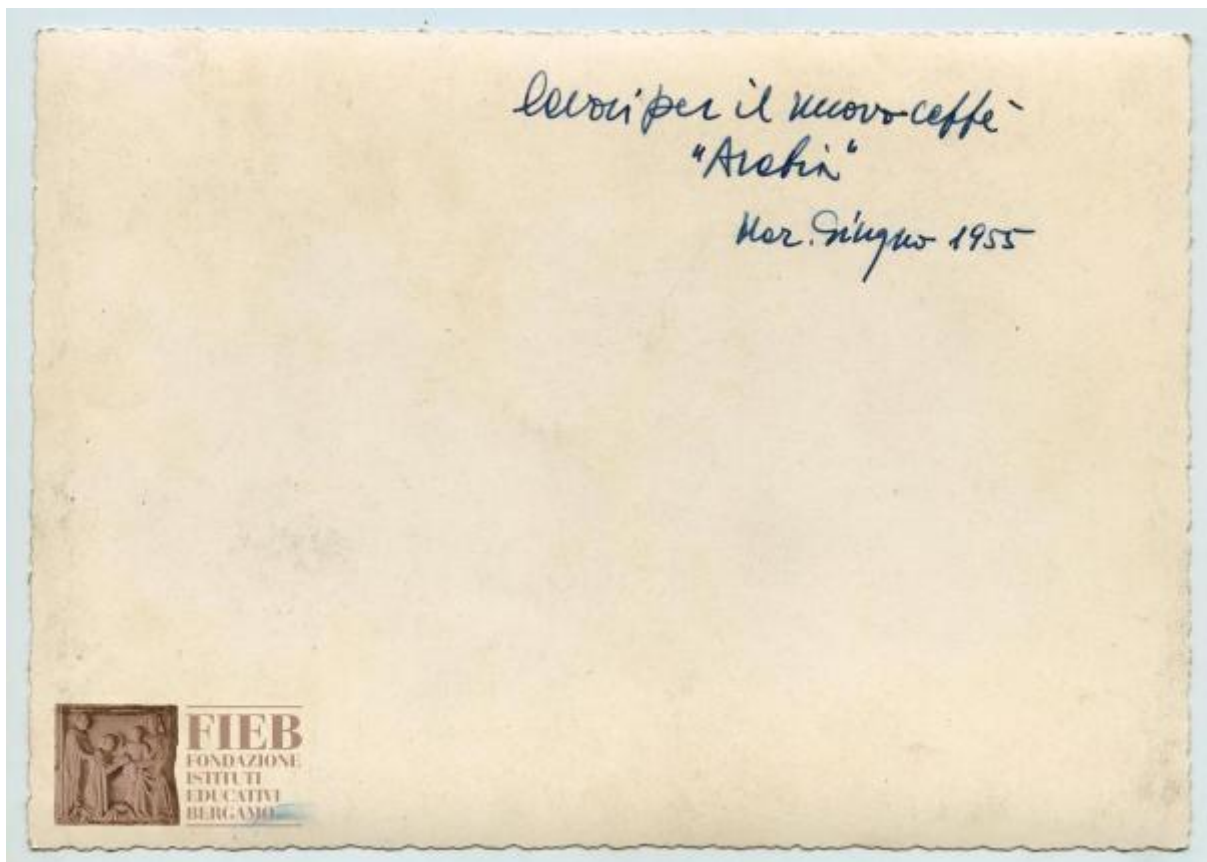 lavori per il nuovo caffè
"Arabia"
Mar. Giugno 1955
FIEB
FONDAZIONE
ISTITUTI
EDUCATIVI
BERGAMO